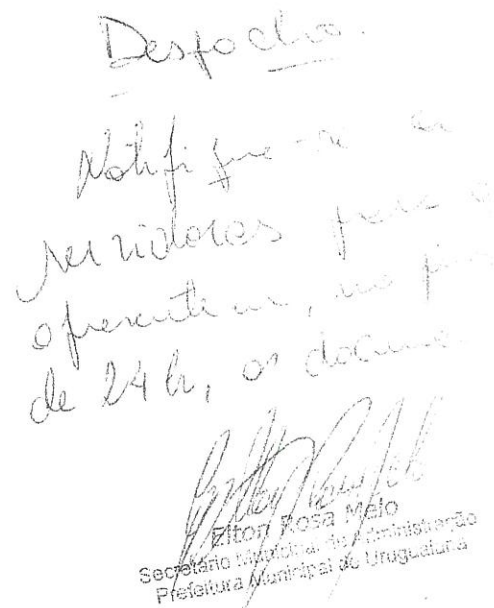 Despacho.
Notifique-se as
servidoras para
apresentem, no
de 24 h, os
Elton Rosa Melo
Secretário Municipal de Administração
Prefeitura Municipal de Uruguaiana